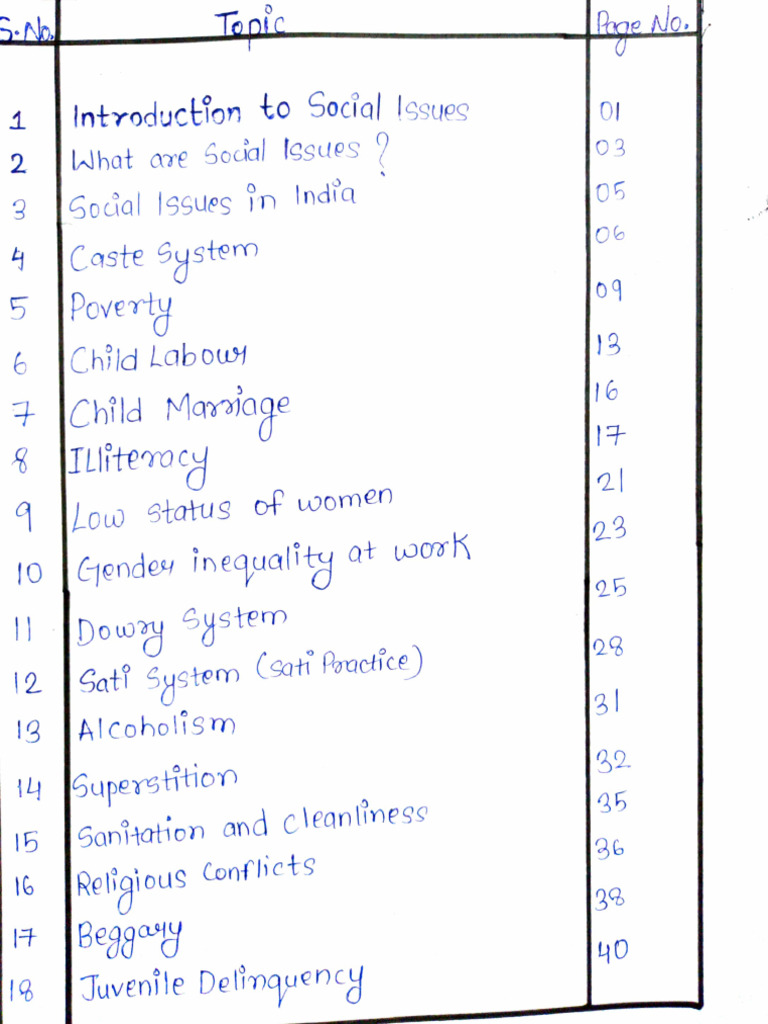 S.No. Topic Page No.
1 Introduction to Social Issues 01
2 What are Social Issues? 03
3 Social Issues in India 05
4 Caste System 06
5 Poverty 09
6 Child Labour 13
7 Child Marriage 16
8 ILliteracy 17
9 Low status of women 21
10 Gender inequality at work 23
11 Dowry System 25
12 Sati System (Sati Practice) 28
13 Alcoholism 31
14 Superstition 32
15 Sanitation and Cleanliness 35
16 Religious Conflicts 36
17 Beggary 38
18 Juvenile Delinquency 40